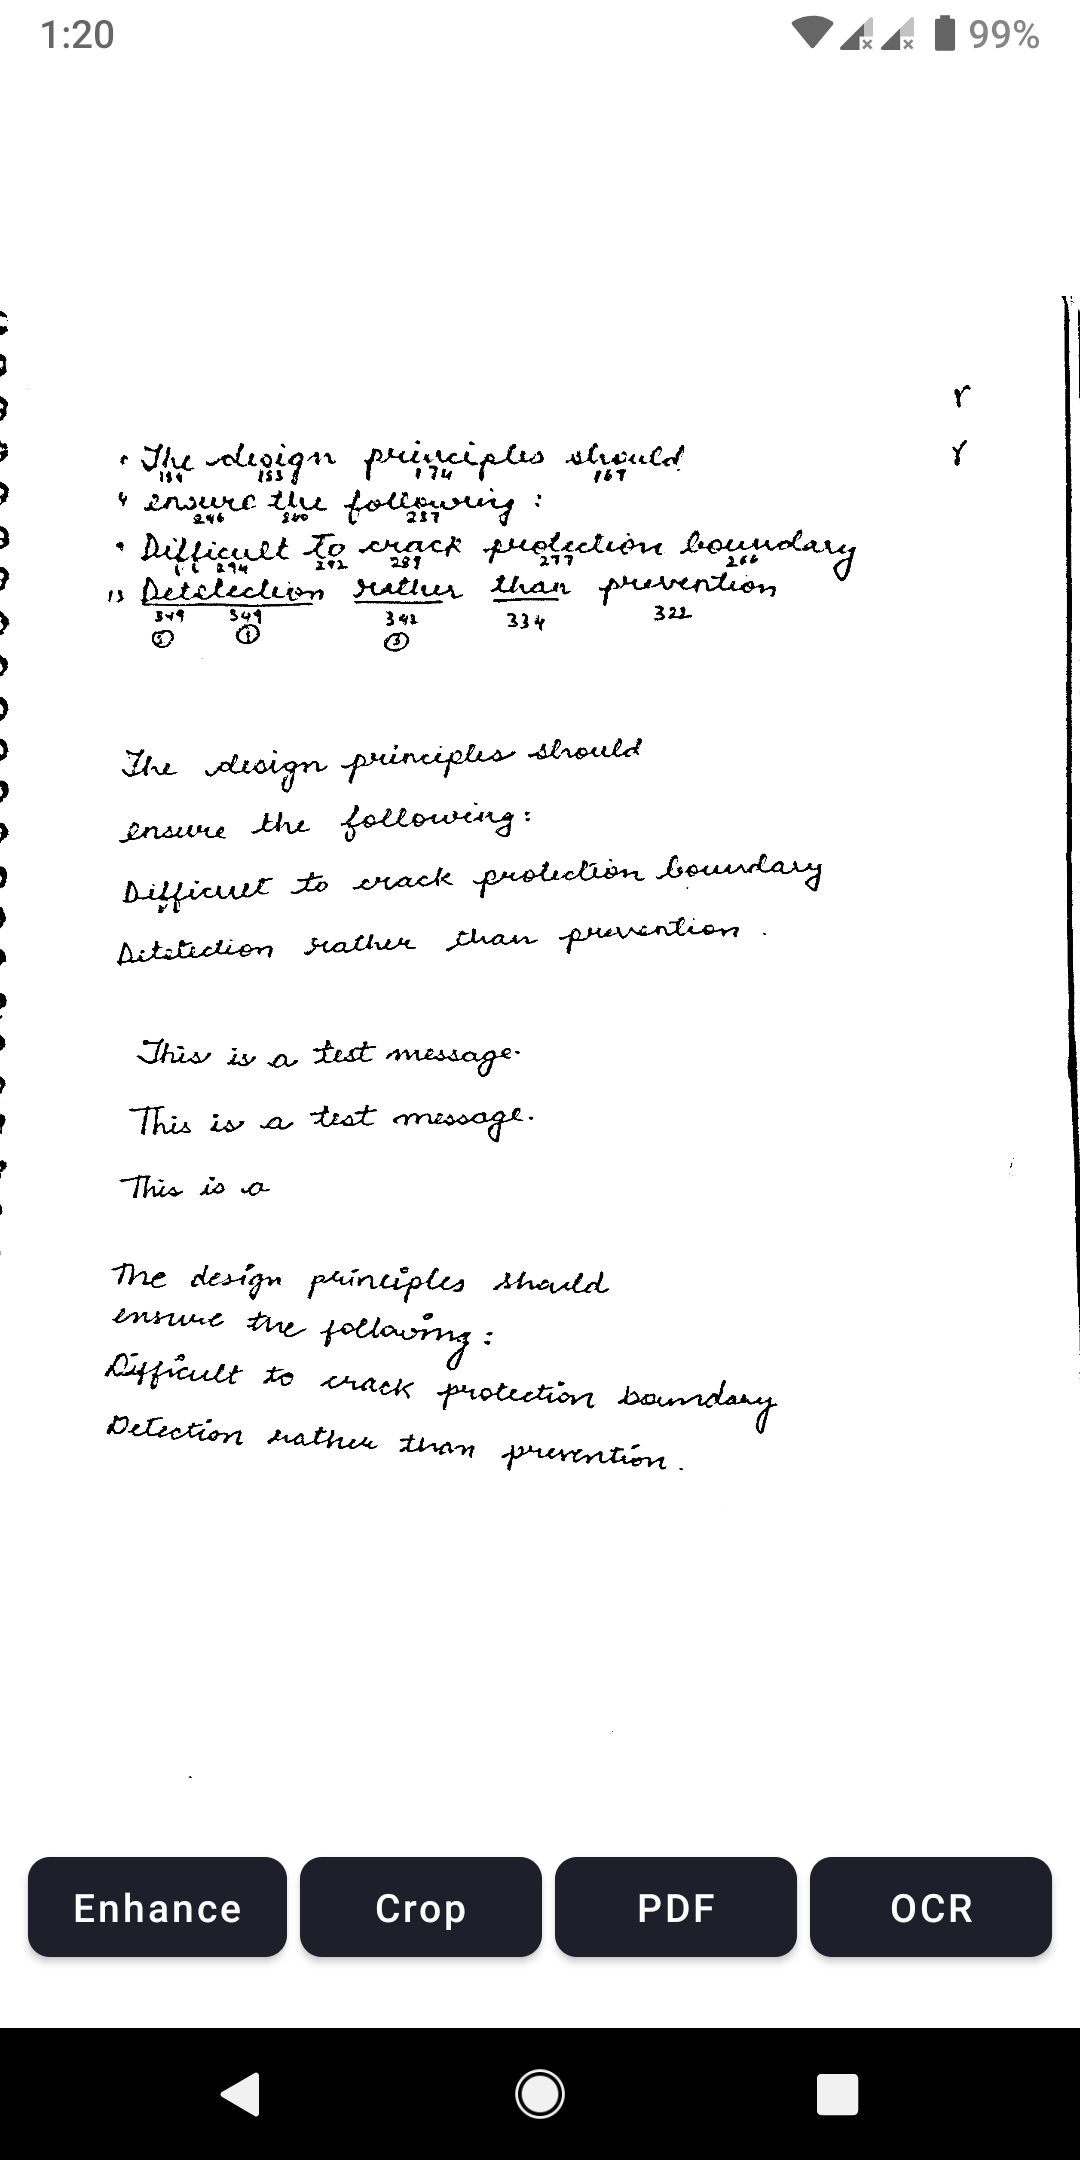 1:20
99%
r
The design principles should
r
154 153 174 167
ensure the following:
246 260 257
Difficult to crack protection boundary
294 292 289 277 266
13 Detetection rather than prevention
349 349 342 334 322
2 1 3
The design principles should
ensure the following:
Difficult to crack protection boundary
Detetection rather than prevention.
This is a test message.
This is a test message.
This is a
The design principles should
ensure the following:
Difficult to crack protection boundary
Detection rather than prevention.
Enhance Crop PDF OCR